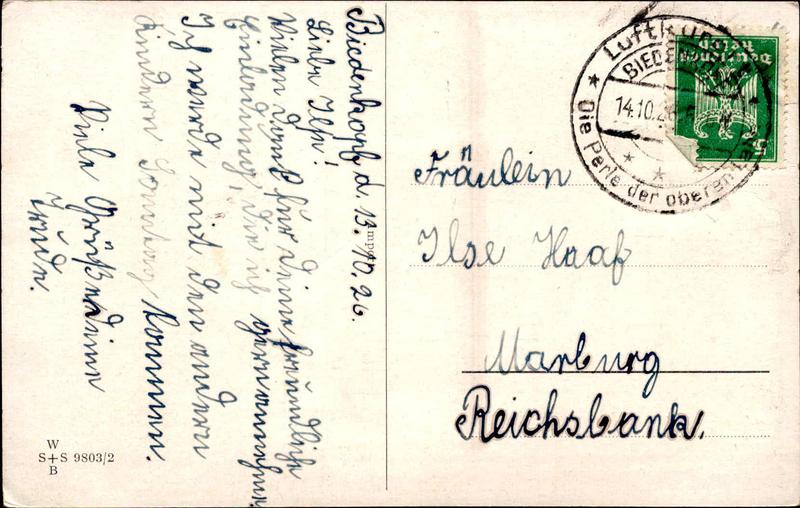 Biedenkopf d. 13.10.26.
Liebe Ilse!
Vielen Dank für deine freundliche
Einladung, die ich gern annehme.
Ich werde mit den andern
Kindern Sonntag kommen.
Viele Grüße deine
Trude.
W
S+S 9803/2
B
Luftkurort
BIEDENKOPF
14.10.26
Die Perle der oberen
Deutsches
Reich
5
Fräulein
Ilse Haaf
Marburg
Reichsbank.